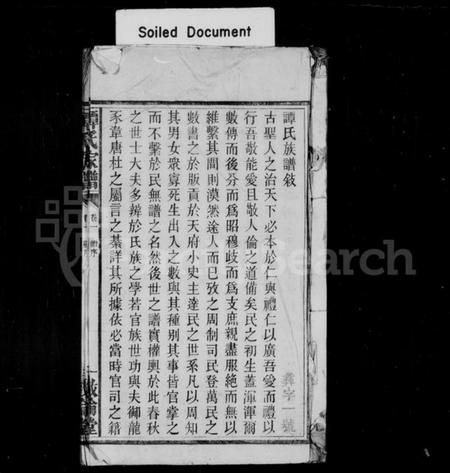 Soiled Document
譚氏族譜敍
古聖人之治天下必本於仁與禮仁以廣吾愛而禮以
行吾敬能愛且敬人倫之道備矣民之初生蓋渾渾爾
數傳而後分而爲昭穆歧而爲支庶親盡服絶而無以
維繫其間則漠然途人而已攷之周制司民登萬民之
數書之於版貢於天府小史主達民之世系凡以周知
其男女衆寡死生出入之數與其種別其事皆官掌之
而不繫於民無譜之名然後世之譜實權輿於此春秋
之世士大夫多辨於氏族之學若官族世功與夫御龍
豕韋唐杜之屬言之綦詳其所據依必當時官司之籍
字一號
氏家譜
卷